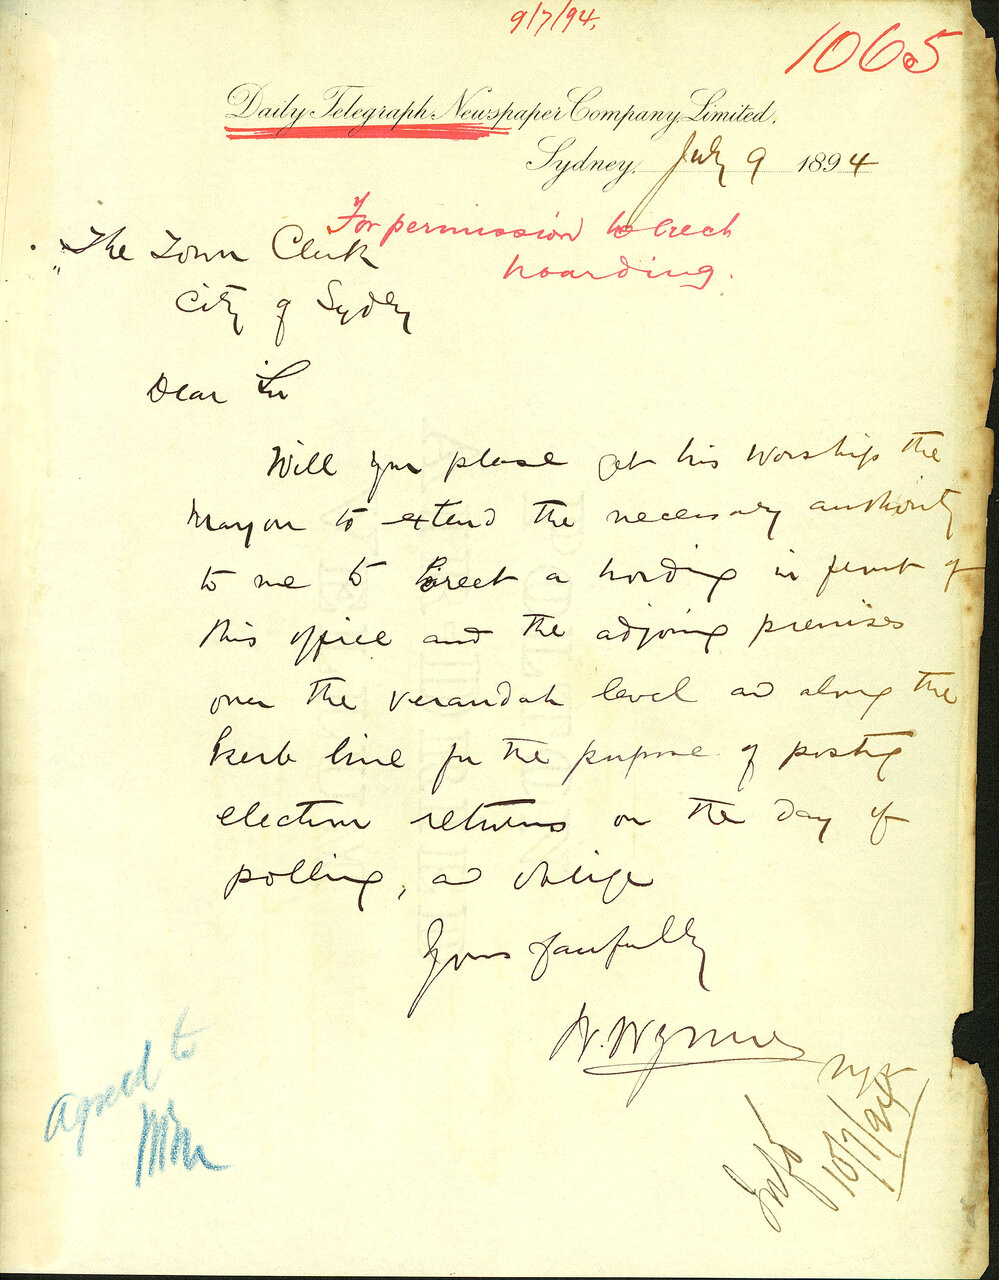 9/7/94.
1065
Daily Telegraph Newspaper Company, Limited,
Sydney, July 9 1894
For permission to Erect
hoarding.
The Town Clerk
City of Sydney
Dear Sir
Will you please get his Worship the
Mayor to extend the necessary authority
to me to Erect a hording in front of
this office and the adjoing premises
over the verandah level and along the
kerb line for the purpose of posting
election returns on the day of
polling, and oblige
Yours faithfully
W. Wynne
Mgr
Agreed to
Infd
10/7/94